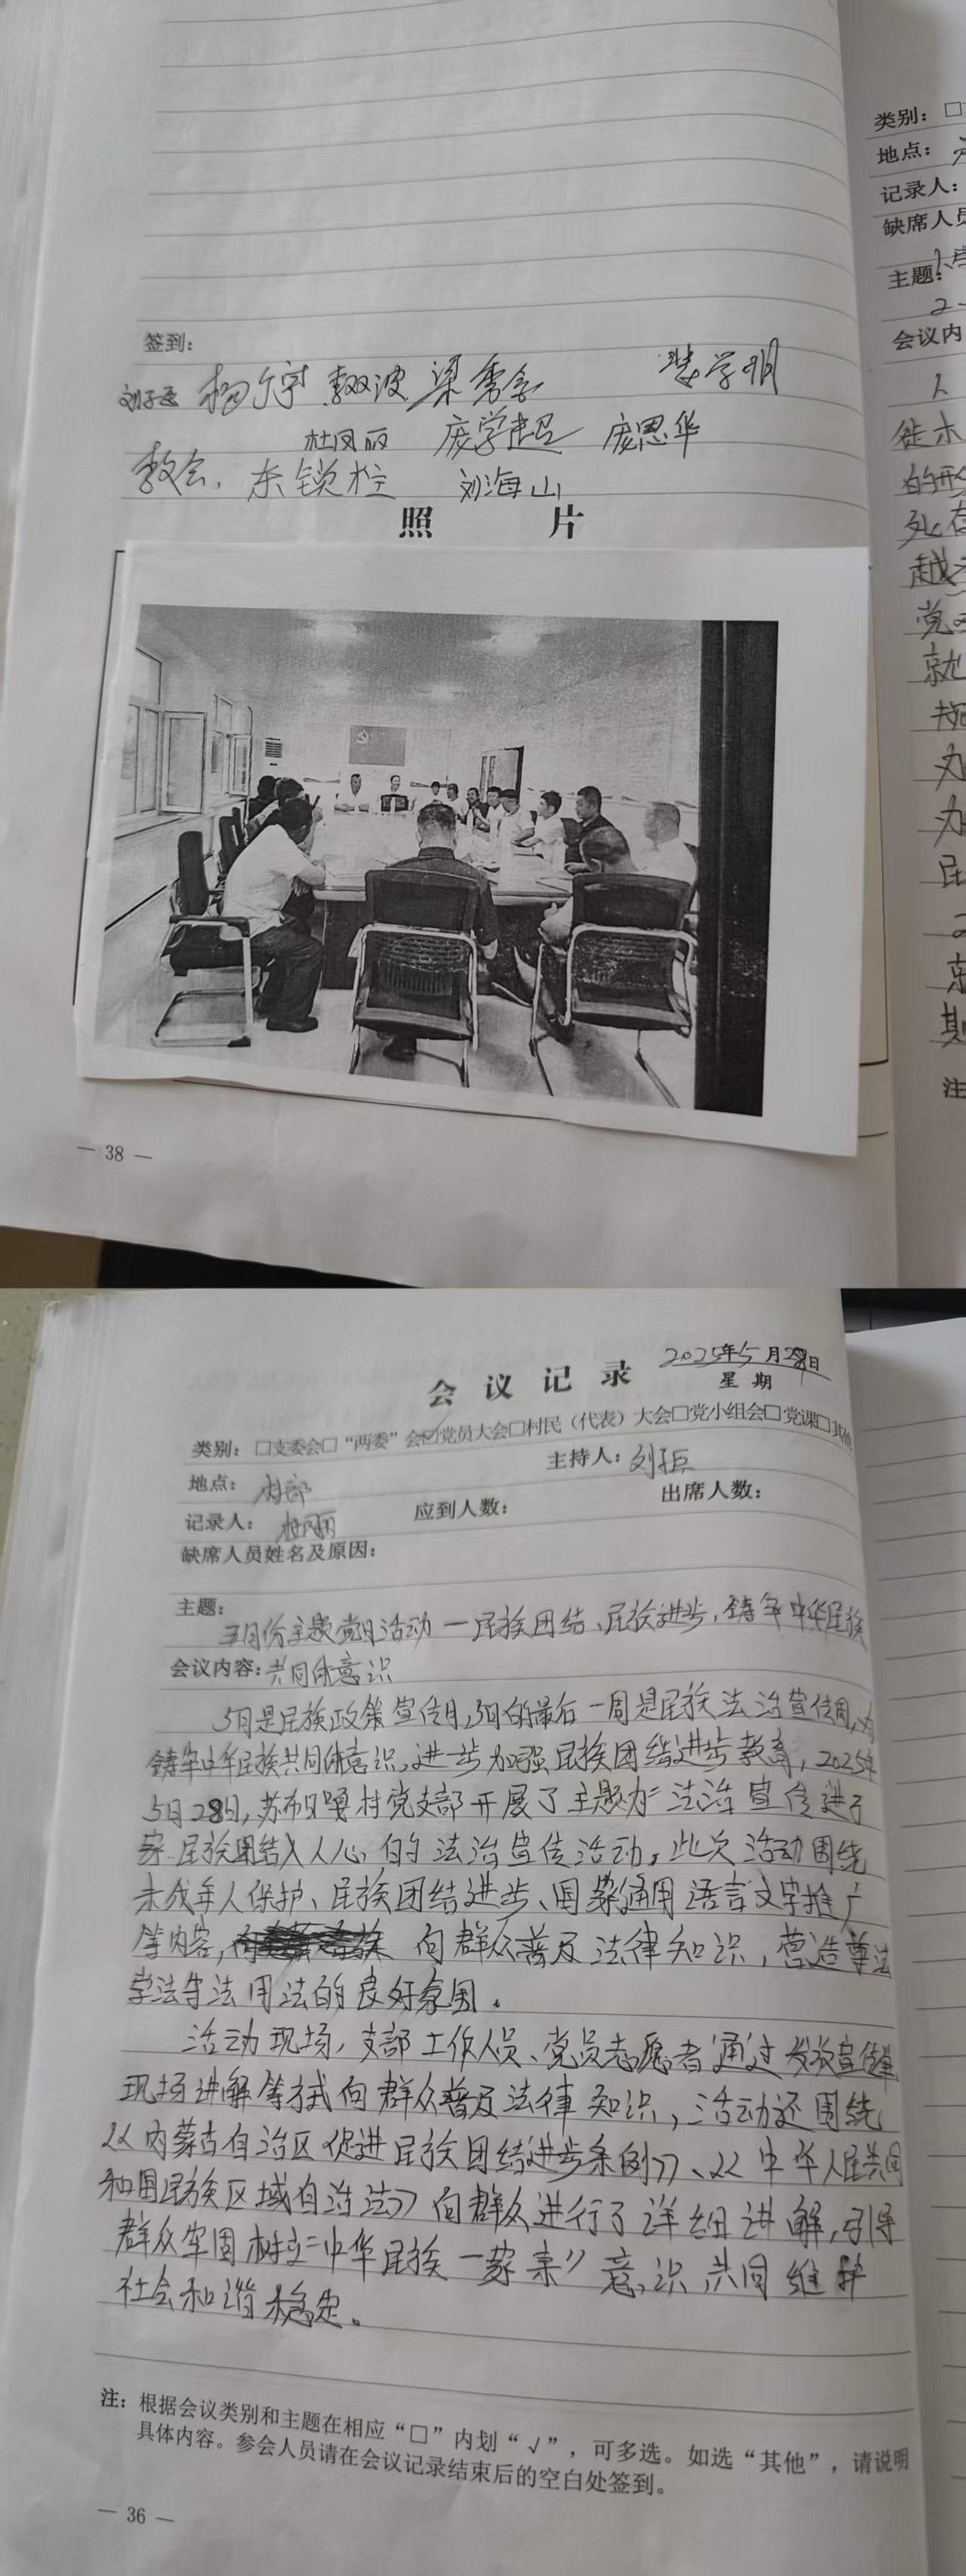 签到:
杨宁 梁秀 学明
杜凤丽 庞学超 庞思华
教会. 东锁柱 刘海山
照 片
— 38 —
类别: □
地点:
记录人:
缺席人员
主题:
会议内
注
2025年5月28日
会议记录
星期
类别: □支委会□“两委”会☑党员大会□村民（代表）大会□党小组会□党课□其他
地点: 村部
主持人: 刘
记录人: 杜丽
应到人数:
出席人数:
缺席人员姓名及原因:
主题:
五月份主题党日活动一民族团结、民族进步,铸牢中华民族
会议内容: 共同体意识
5月是民族政策宣传月,5月的最后一周是民族法治宣传周,为
铸牢中华民族共同体意识,进一步加强民族团结进步教育,2025年
5月28日,苏布日嘎村党支部开展了主题为“法治宣传进万
家 民族团结入人心”的法治宣传活动,此次活动围绕
未成年人保护、民族团结进步、国家通用语言文字推广
等内容, 向群众普及法律知识,营造尊法
学法守法用法的良好氛围.
活动现场,支部工作人员、党员志愿者通过发放宣传单
现场讲解等式向群众普及法律知识,活动还围绕
《内蒙古自治区促进民族团结进步条例》、《中华人民共
和国民族区域自治法》向群众进行了详细讲解,引导
群众牢固树立“中华民族一家亲”意识共同维护
社会和谐稳定。
注: 根据会议类别和主题在相应“□”内划“√”, 可多选。如选“其他”, 请说明
具体内容。参会人员请在会议记录结束后的空白处签到。
— 36 —